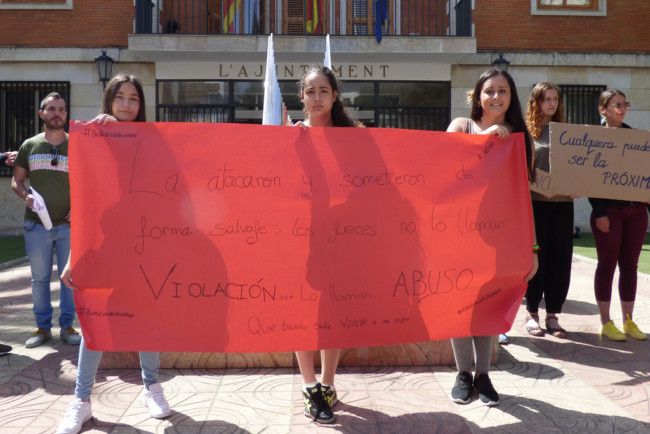 L'AJUNTAMENT
La atacaron y sometieron de
forma salvaje, los jueces no lo llaman
VIOLACIÓN... Lo llaman ABUSO
Que barato sale VIOLAR a una mujer
Cualquiera puede
ser la
PRÓXIMA